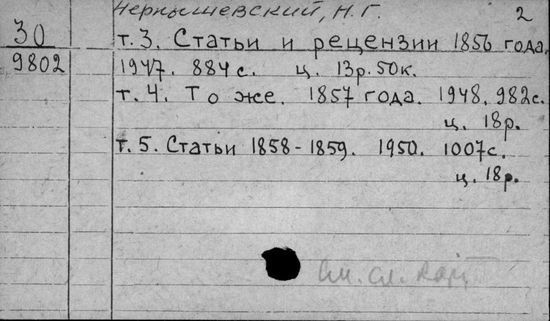 Чернышевский, Н. Г. 2
30
9802
т. 3. Статьи и рецензии 1856 года,
1947. 884 с. ц. 13р. 50к.
т. 4. То же. 1857 года. 1948. 982с.
ц. 18р.
т. 5. Статьи 1858-1859. 1950. 1007с.
ц. 18р.
см. сл. карт